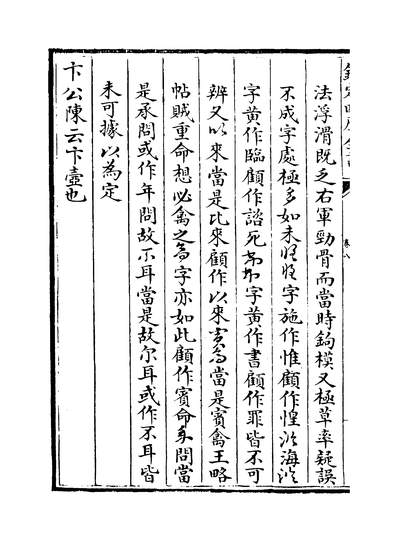 欽定四庫全書
卷八
法浮滑既乏右軍勁骨而當時鉤模又極草率疑誤
不成字處極多如未怪怪字施作惟顧作惶
字黃作臨顧作諮死
字黃作書顧作罪皆不可
辨又以來當是比來顧作以來
當是賓禽王略
帖賊重命想必禽之為字亦如此顧作賓命
問當
是承問或作年問故不耳當是故尔耳或作不耳皆
未可據以為定
卞公陳云卞壼也